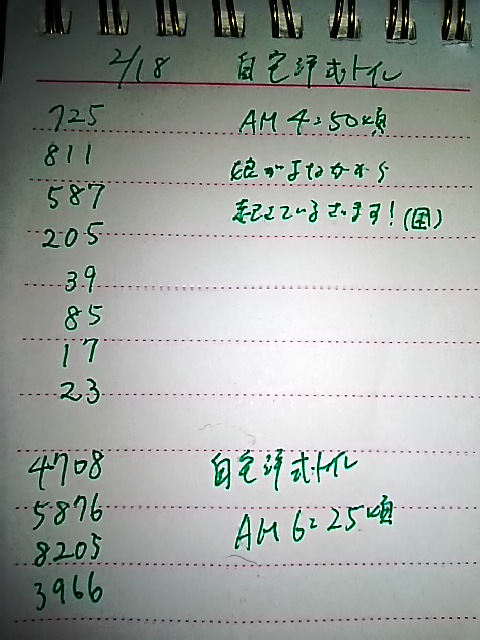 2/18 自宅洋式トイレ
725 AM 4:50頃
811 娘がよなかから
587
205 起きています!(困)
39
85
17
23
4708 自宅洋式トイレ
5876
8205 AM 6:25頃
3966